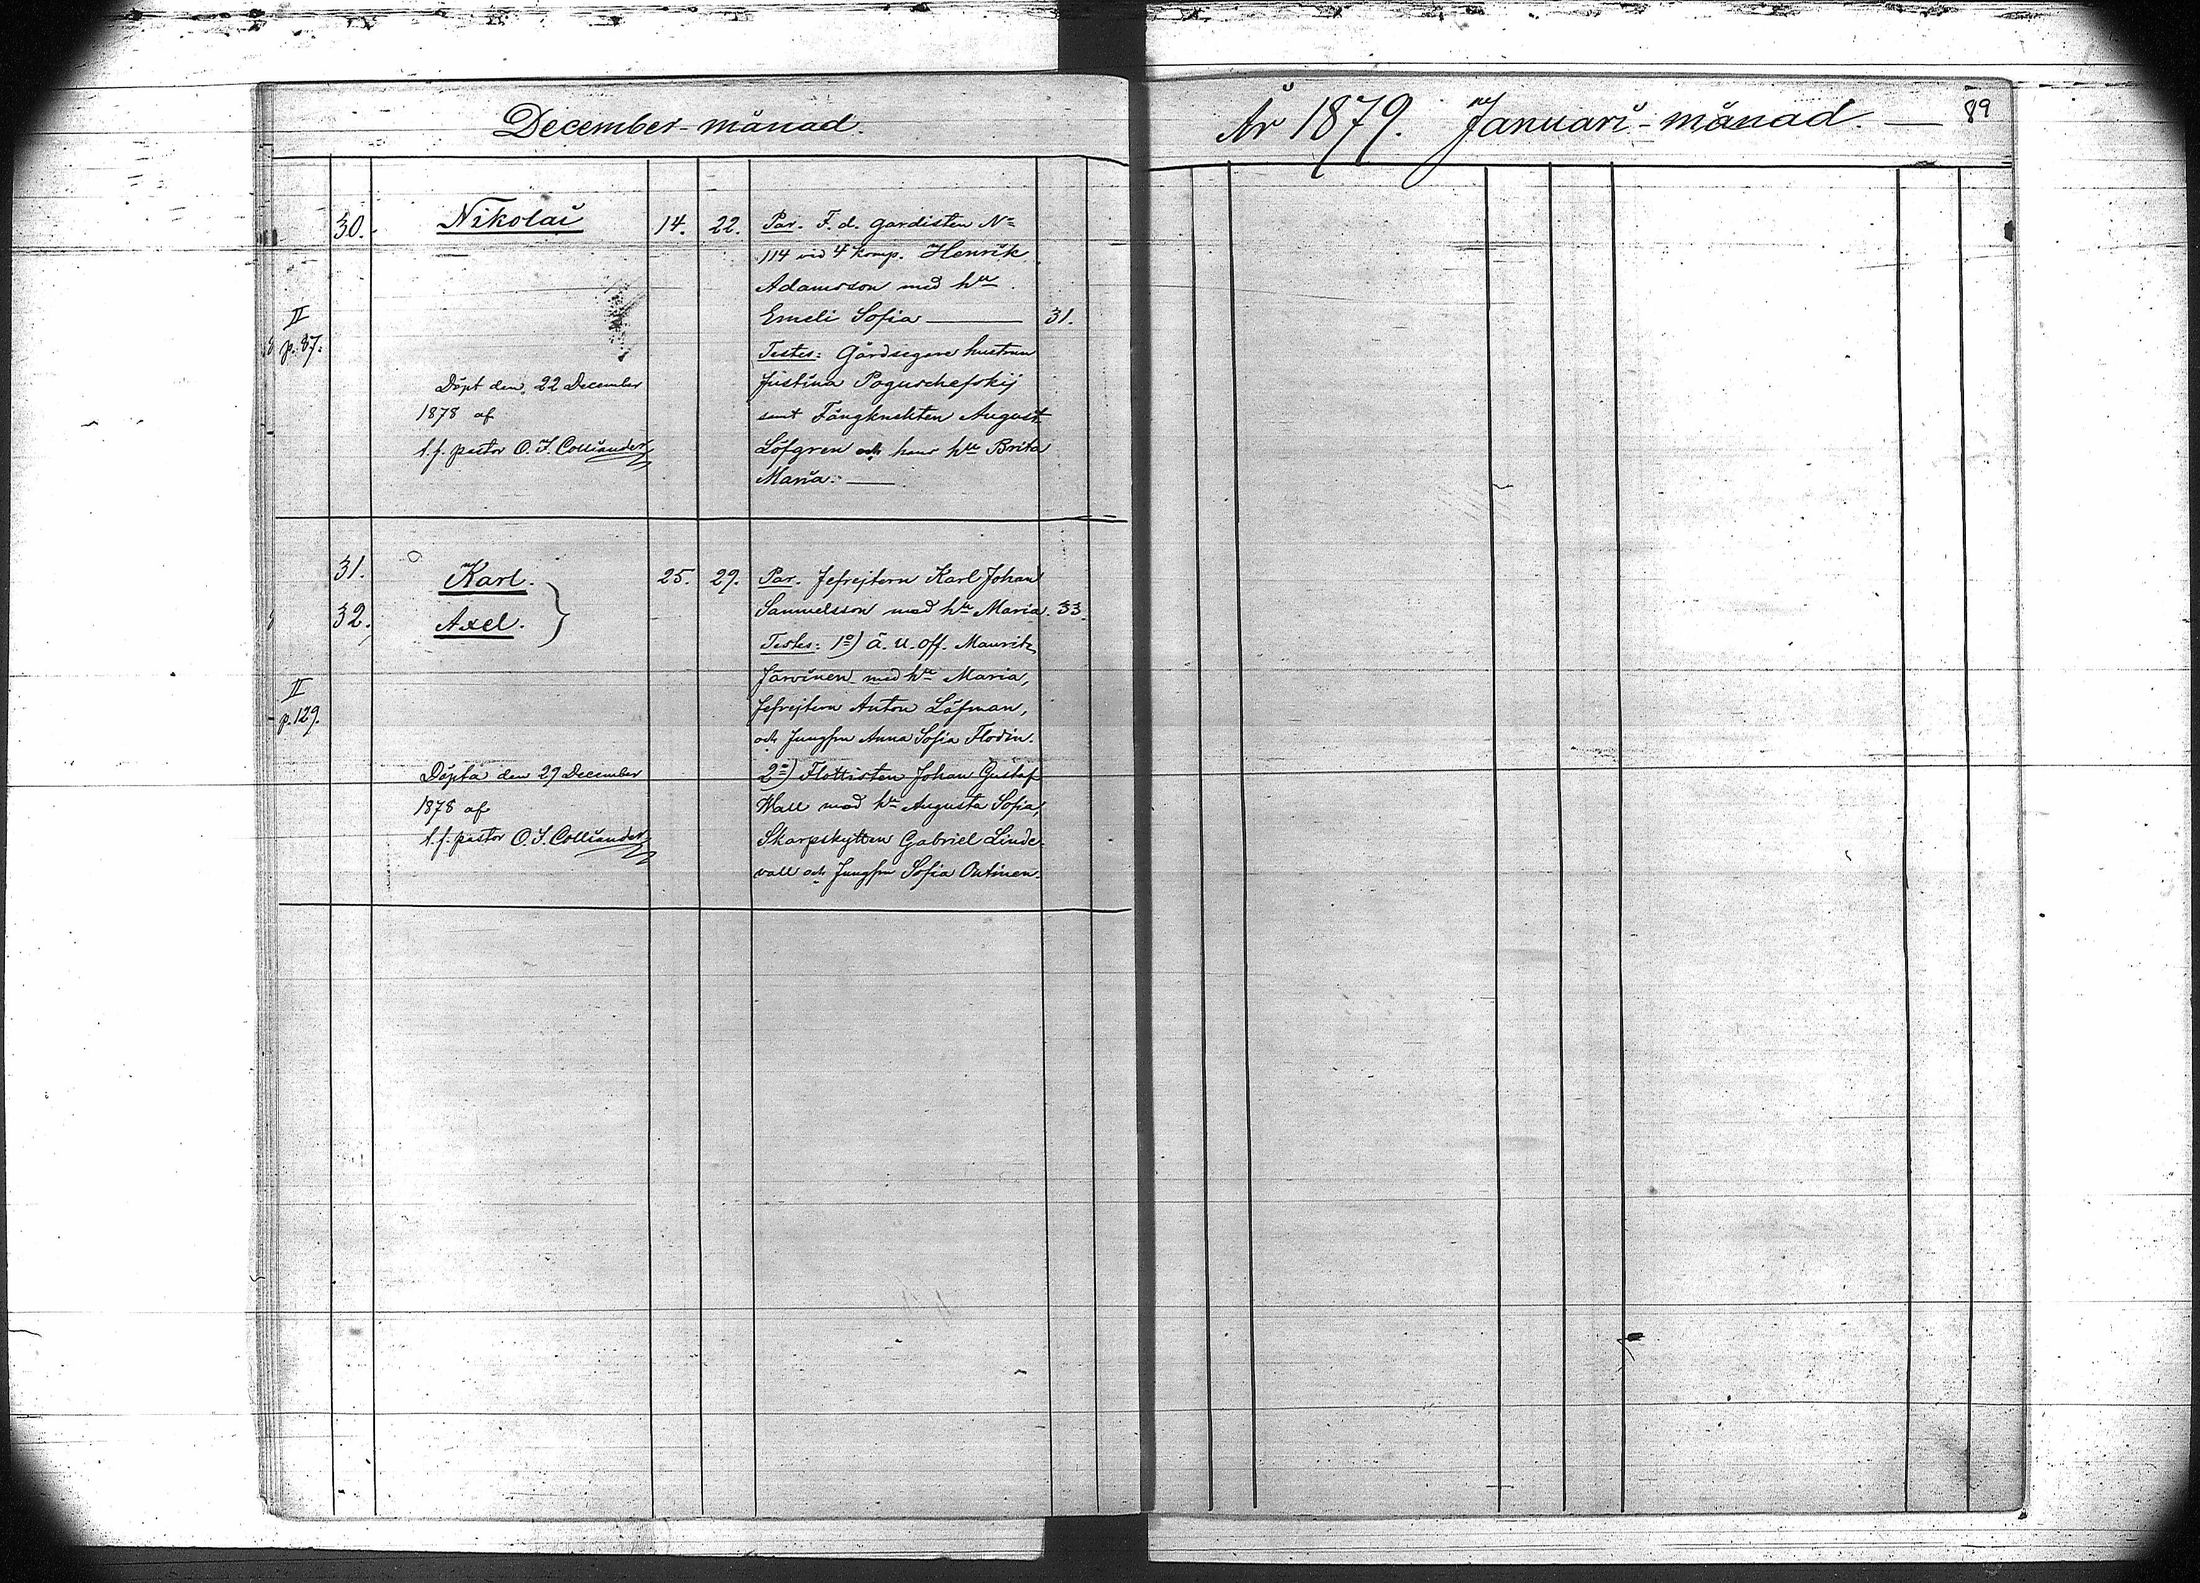 December-månad.
30. Nikolai 14. 22. Par. F. d. gardisten No
114 vid 4 komp. Henrik
Adamsson med hu
II Emeli Sofia — 31.
p. 87. Testes: Gårdsegare hustrun
Justina Poguschefskij
Döpt den 22 December
1878 af samt Fångknekten August
t. f. pastor O. I. Colliander Löfgren och hans hu Brita
Maria. —
31. Karl. 25. 29. Par. Gefrejtern Karl Johan
32. Axel. } Samuelsson med hu Maria. 33.
Testes: 1o) ä. u. off. Mauritz
II Järvinen med hu Maria,
p. 129. Gefrejtern Anton Löfman,
och Jungfru Anna Sofia Flodin.
Döpta den 29 December 2o) Flottisten Johan Gustaf
1878 af Wall med hu Augusta Sofia,
t. f. pastor O. I. Colliander Skarpskytten Gabriel Linde-
vall och Jungfru Sofia Outinen.
År 1879. Januari-månad. — 89